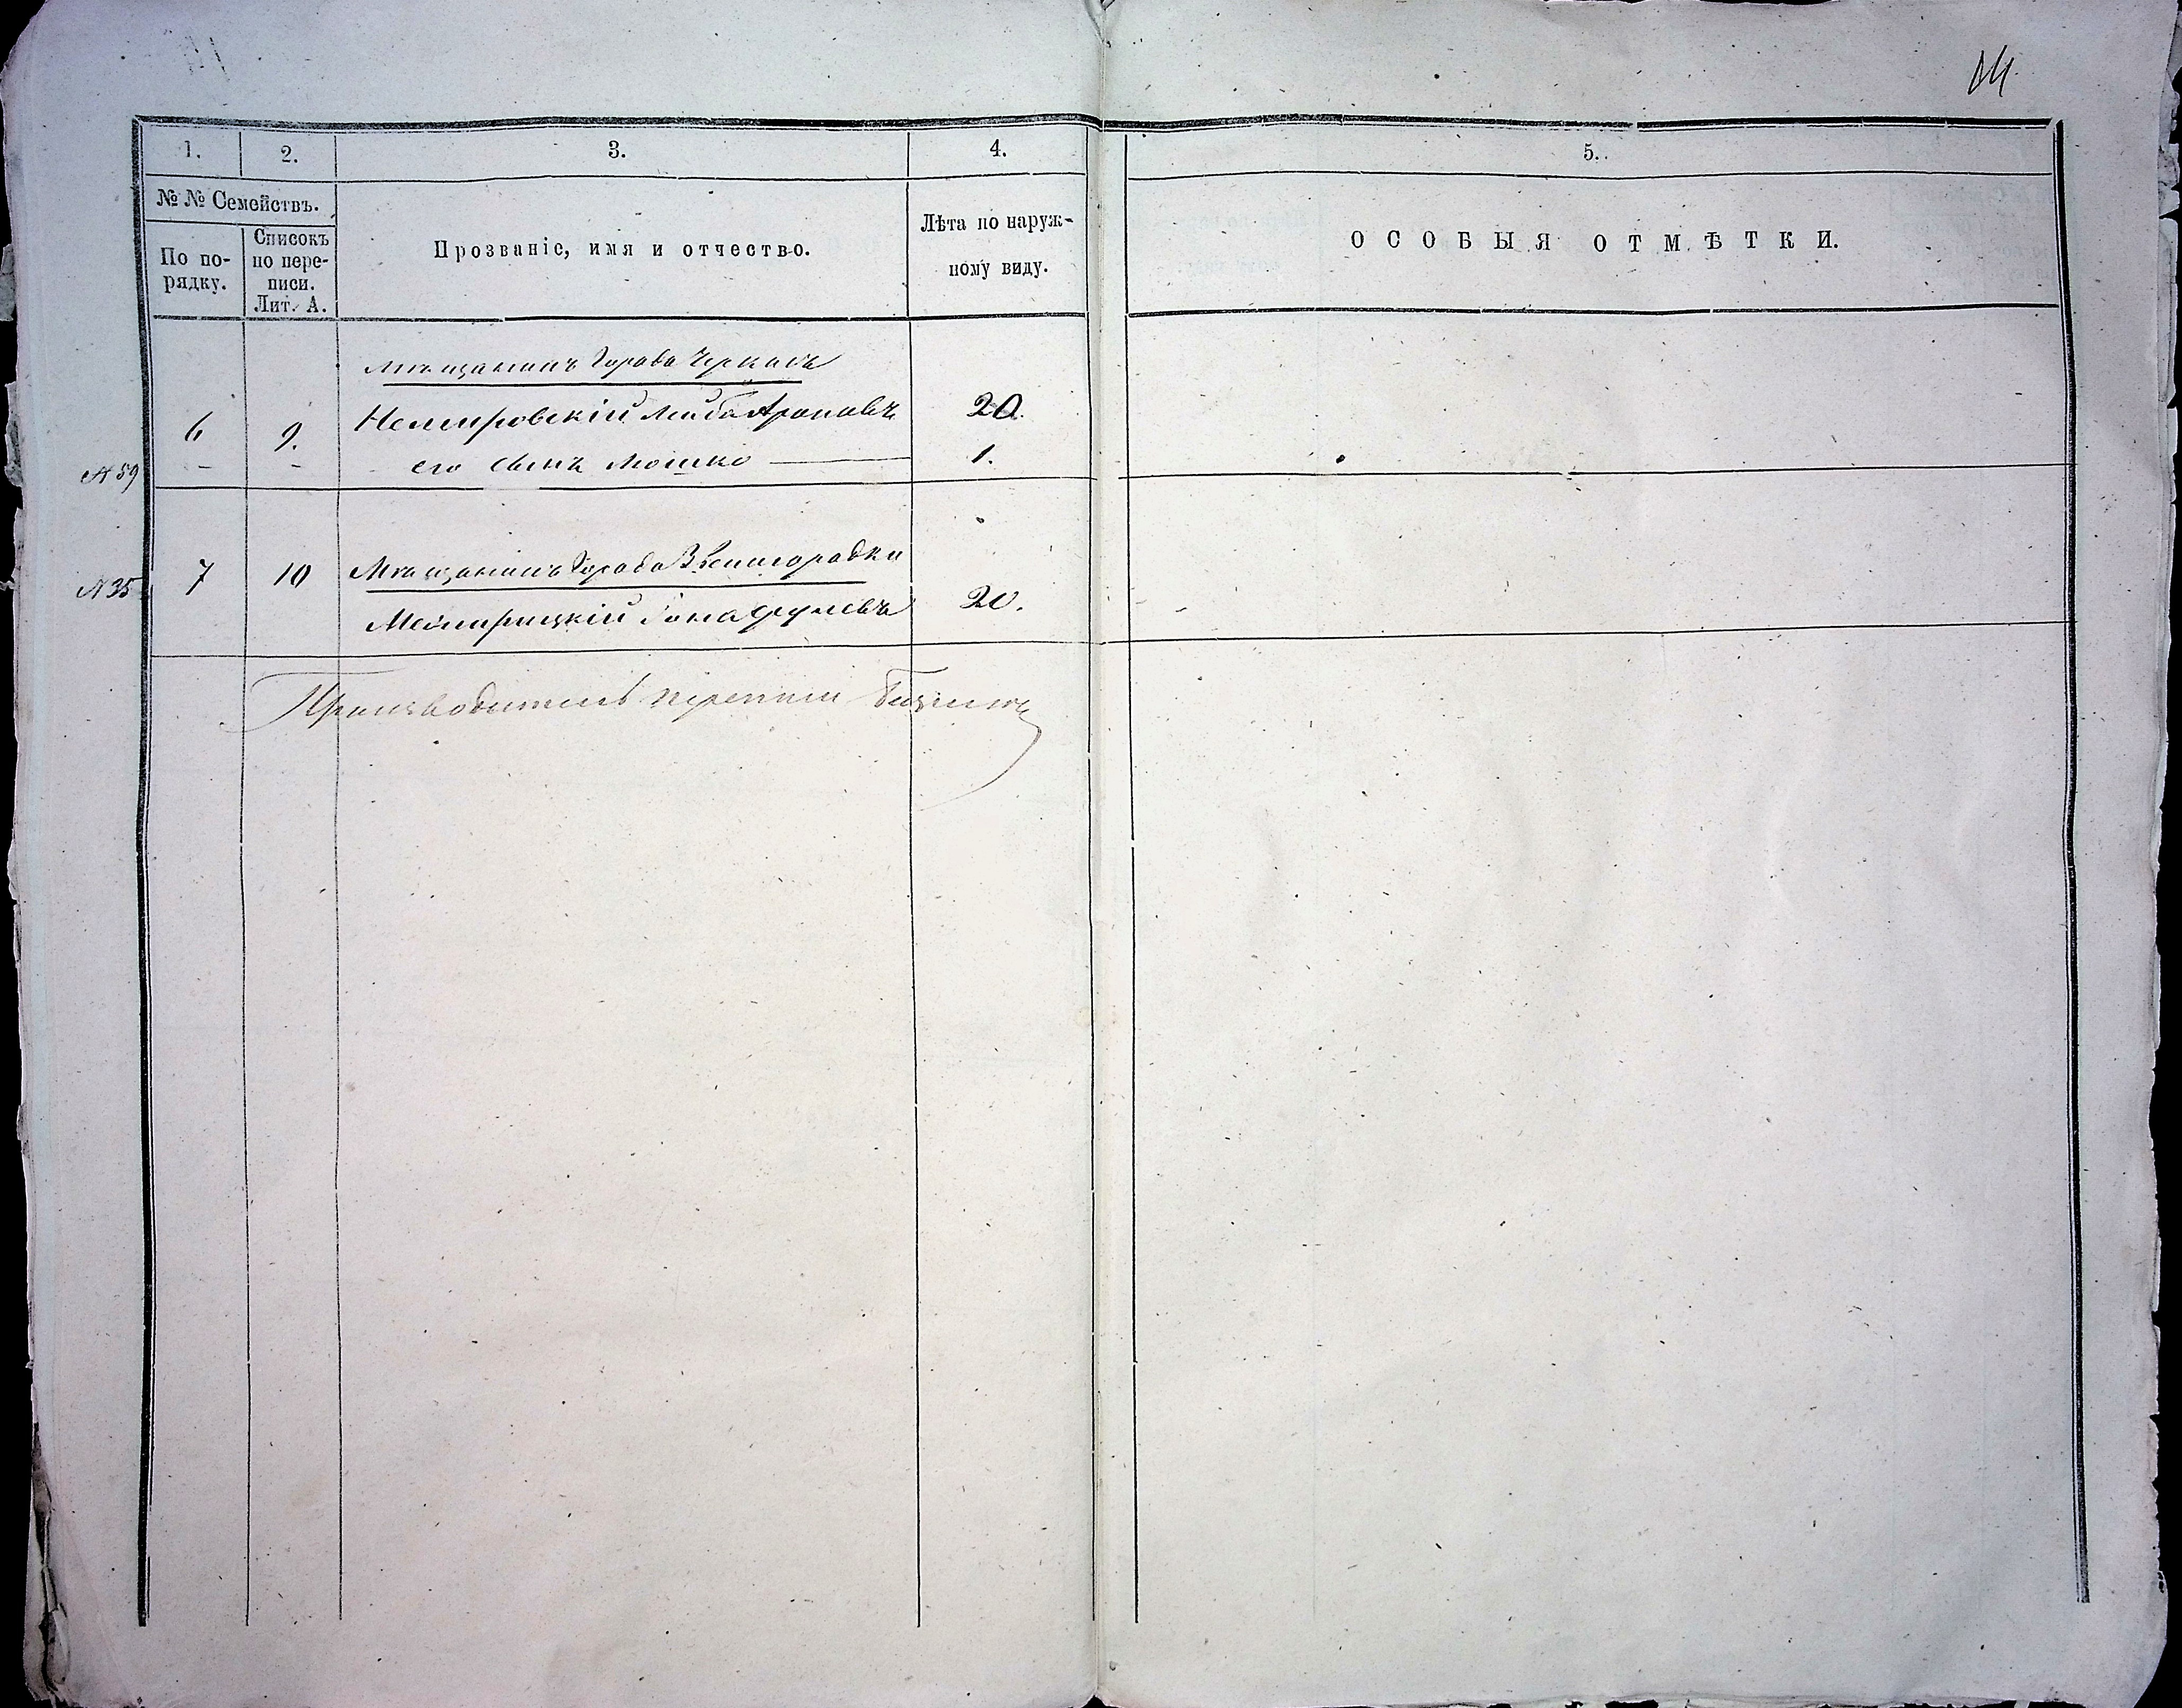 14
1.
2.
3.
4.
5.
№ № Семействъ.
По по-
рядку.
Списокъ
по пере-
писи.
Лит. А.
Прозваніе, имя и отчество.
Лѣта по наруж-
ному виду.
ОСОБЫЯ ОТМѢТКИ.
Мѣщанинъ Города Черкасъ
6 9. Немировскій Лейба Ароновъ 20.
№ 59 – – его сынъ Мошко — 1.
Мѣщанинъ Города Звенигородки
№ 35 7 10
Межирицкій 20.
Производитель переписи